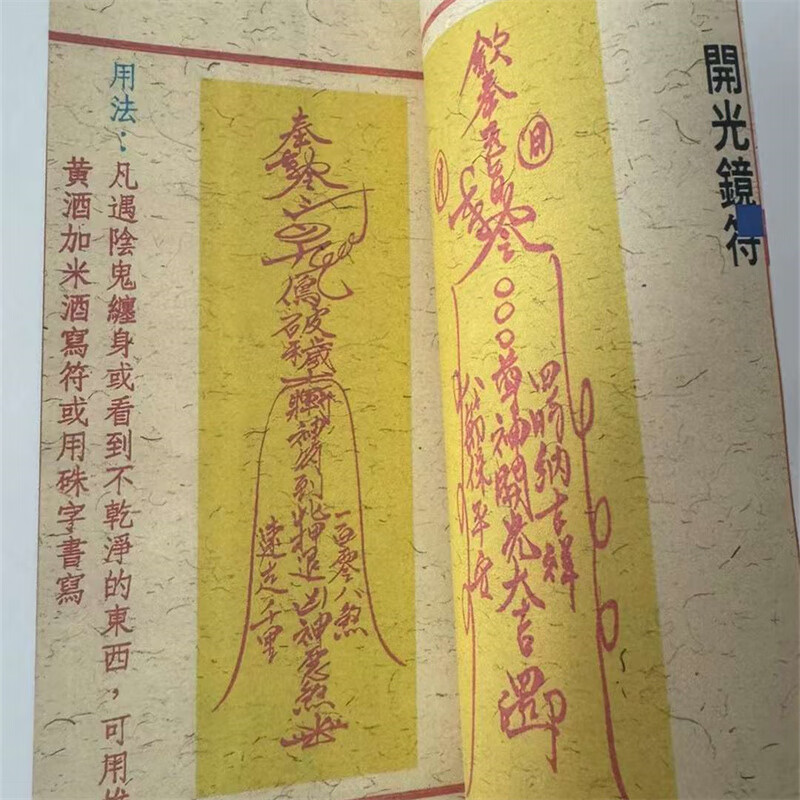 開光鏡符
欽奉
日
月
○○○尊神開光大吉
四時納吉祥
八節保平安
用法：
凡遇陰鬼纏身或看到不乾淨的東西，可用
黃酒加米酒寫符或用硃字書寫
奉
破穢
神
到此押退凶神惡煞
一百零八煞
速走千里